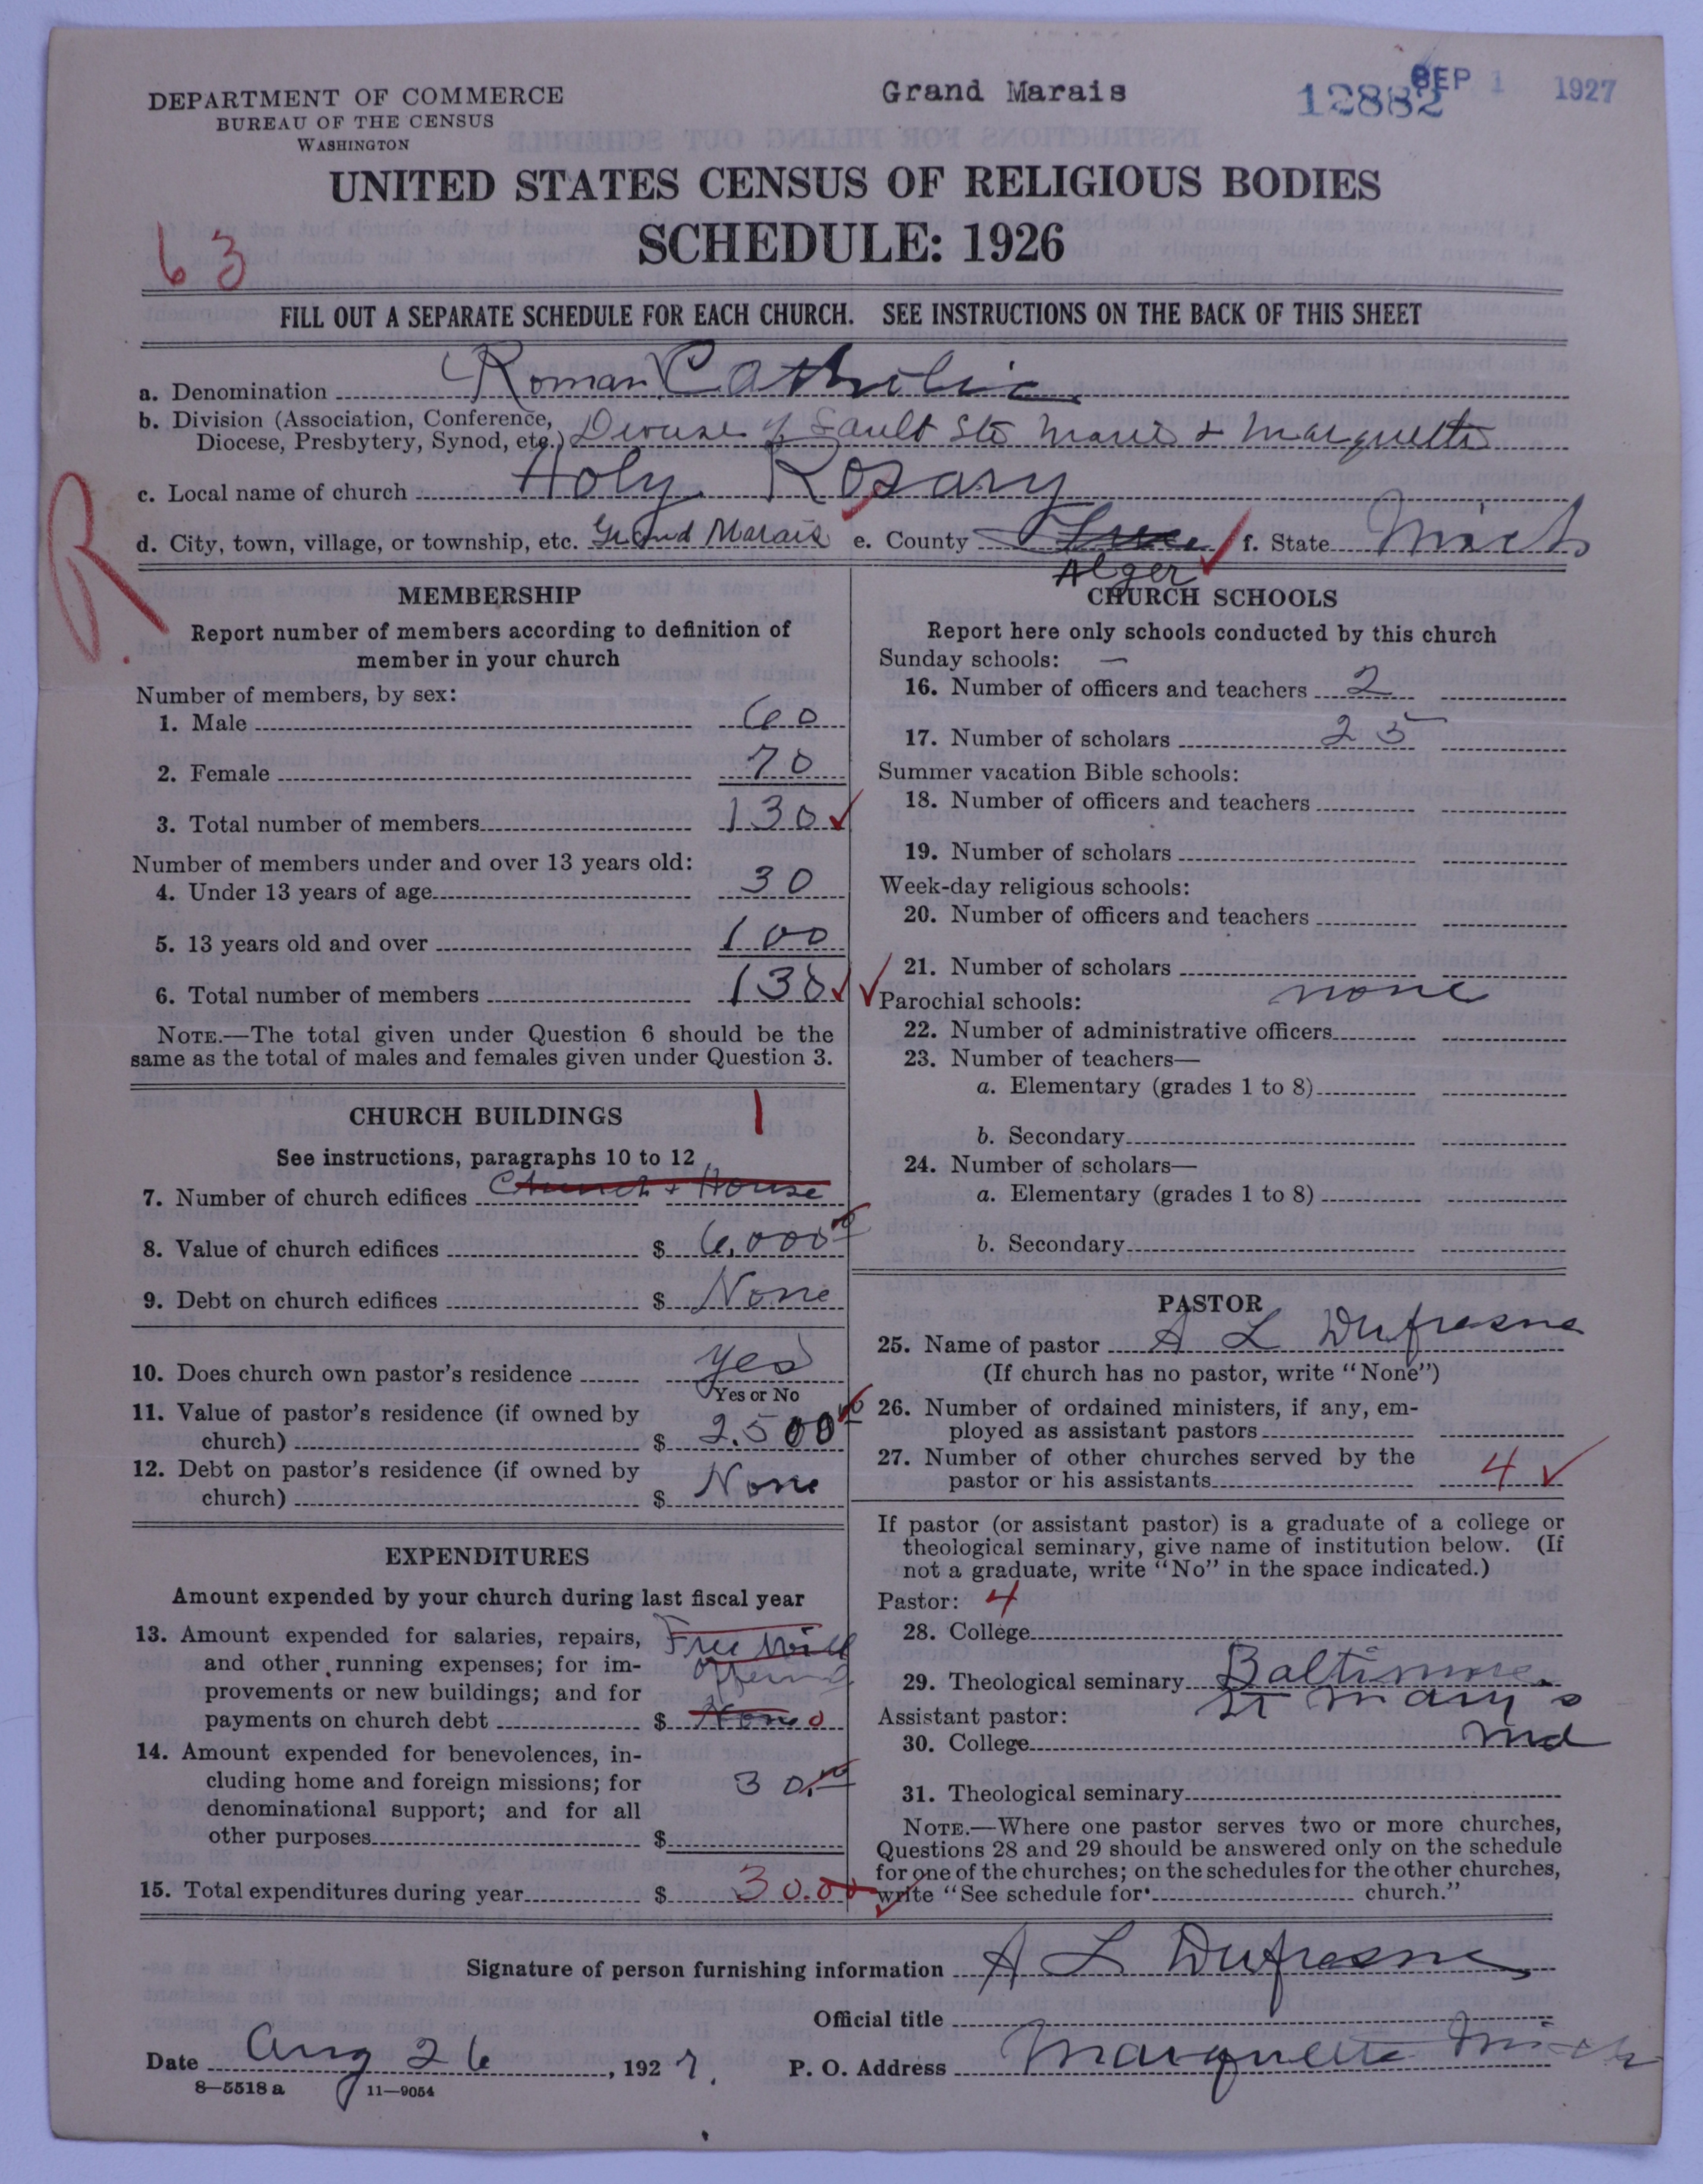 DEPARTMENT OF COMMERCE
BUREAU OF THE CENSUS
WASHINGTON
Grand Marais
12882
SEP 1 1927
UNITED STATES CENSUS OF RELIGIOUS BODIES
SCHEDULE: 1926
63
FILL OUT A SEPARATE SCHEDULE FOR EACH CHURCH. SEE INSTRUCTIONS ON THE BACK OF THIS SHEET
a. Denomination Roman Catholic
b. Division (Association, Conference,
Diocese, Presbytery, Synod, etc.) Diocese of Sault Ste Marie + Marquette
c. Local name of church Holy Rosary
R.
d. City, town, village, or township, etc. Grand Marais e. County f. State Mich
Alger
MEMBERSHIP
Report number of members according to definition of
member in your church
Number of members, by sex:
1. Male 60
2. Female 70
3. Total number of members 130
Number of members under and over 13 years old:
4. Under 13 years of age 30
5. 13 years old and over 100
6. Total number of members 130
NOTE.—The total given under Question 6 should be the
same as the total of males and females given under Question 3.
CHURCH BUILDINGS 1
See instructions, paragraphs 10 to 12
7. Number of church edifices Church + House
8. Value of church edifices $ 6,000 00
9. Debt on church edifices $ None
10. Does church own pastor's residence yes
Yes or No
11. Value of pastor's residence (if owned by
church) $ 2.500 00
12. Debt on pastor's residence (if owned by
church) $ None
EXPENDITURES
Amount expended by your church during last fiscal year
13. Amount expended for salaries, repairs, Free Will
and other running expenses; for im- offering
provements or new buildings; and for
payments on church debt $ None 0
14. Amount expended for benevolences, in-
cluding home and foreign missions; for 30.00
denominational support; and for all
other purposes $
15. Total expenditures during year $ 30.00
CHURCH SCHOOLS
Report here only schools conducted by this church
Sunday schools: —
16. Number of officers and teachers 2
17. Number of scholars 25
Summer vacation Bible schools:
18. Number of officers and teachers
19. Number of scholars
Week-day religious schools:
20. Number of officers and teachers
21. Number of scholars
Parochial schools: none
22. Number of administrative officers
23. Number of teachers—
a. Elementary (grades 1 to 8)
b. Secondary
24. Number of scholars—
a. Elementary (grades 1 to 8)
b. Secondary
PASTOR
25. Name of pastor A L Dufresne
(If church has no pastor, write "None")
26. Number of ordained ministers, if any, em-
ployed as assistant pastors
27. Number of other churches served by the
pastor or his assistants 4
If pastor (or assistant pastor) is a graduate of a college or
theological seminary, give name of institution below. (If
not a graduate, write "No" in the space indicated.)
Pastor: 4
28. College
29. Theological seminary Baltimore.
St Mary's
Assistant pastor:
30. College Md
31. Theological seminary
NOTE.—Where one pastor serves two or more churches,
Questions 28 and 29 should be answered only on the schedule
for one of the churches; on the schedules for the other churches,
write "See schedule for church."
Signature of person furnishing information A L Dufresne
Official title
Date Aug 26, 1927. P. O. Address Marquette Mich
8—5518 a 11—9054